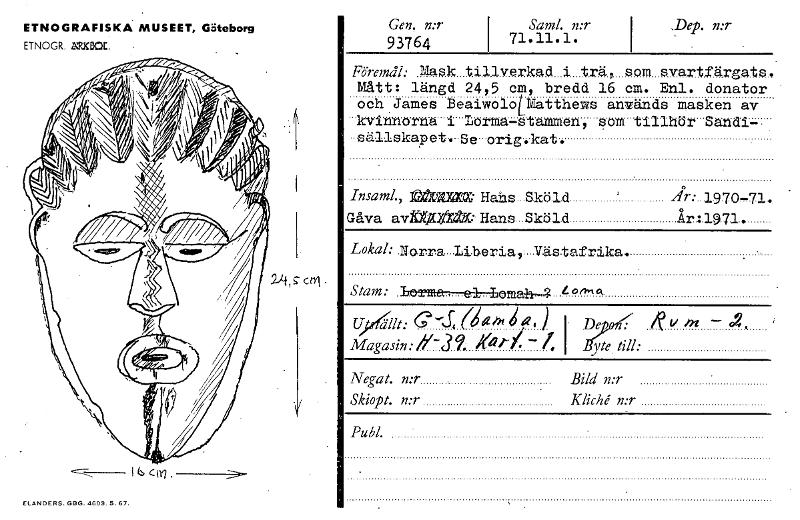 ETNOGRAFISKA MUSEET, Göteborg
ETNOGR.
24,5 cm.
16 cm.
ELANDERS. GBG. 4603. 5. 67.
Gen. n:r Saml. n:r Dep. n:r
93764 71.11.1.
Föremål: Mask tillverkad i trä, som svartfärgats.
Mått: längd 24,5 cm, bredd 16 cm. Enl. donator
och James Beaiwolo Matthews används masken av
kvinnorna i Lorma-stammen, som tillhör Sandi-
sällskapet. Se orig.kat.
Insaml., Hans Sköld År: 1970-71.
Gåva av Hans Sköld År:1971.
Lokal: Norra Liberia, Västafrika.
Stam: Lorma el Lomah ? Loma
Utställt: G-S. (bamba.) Depon: Rum - 2.
Magasin: H-39. Kart.-1. Byte till:
Negat. n:r Bild n:r
Skiopt. n:r Kliché n:r
Publ.